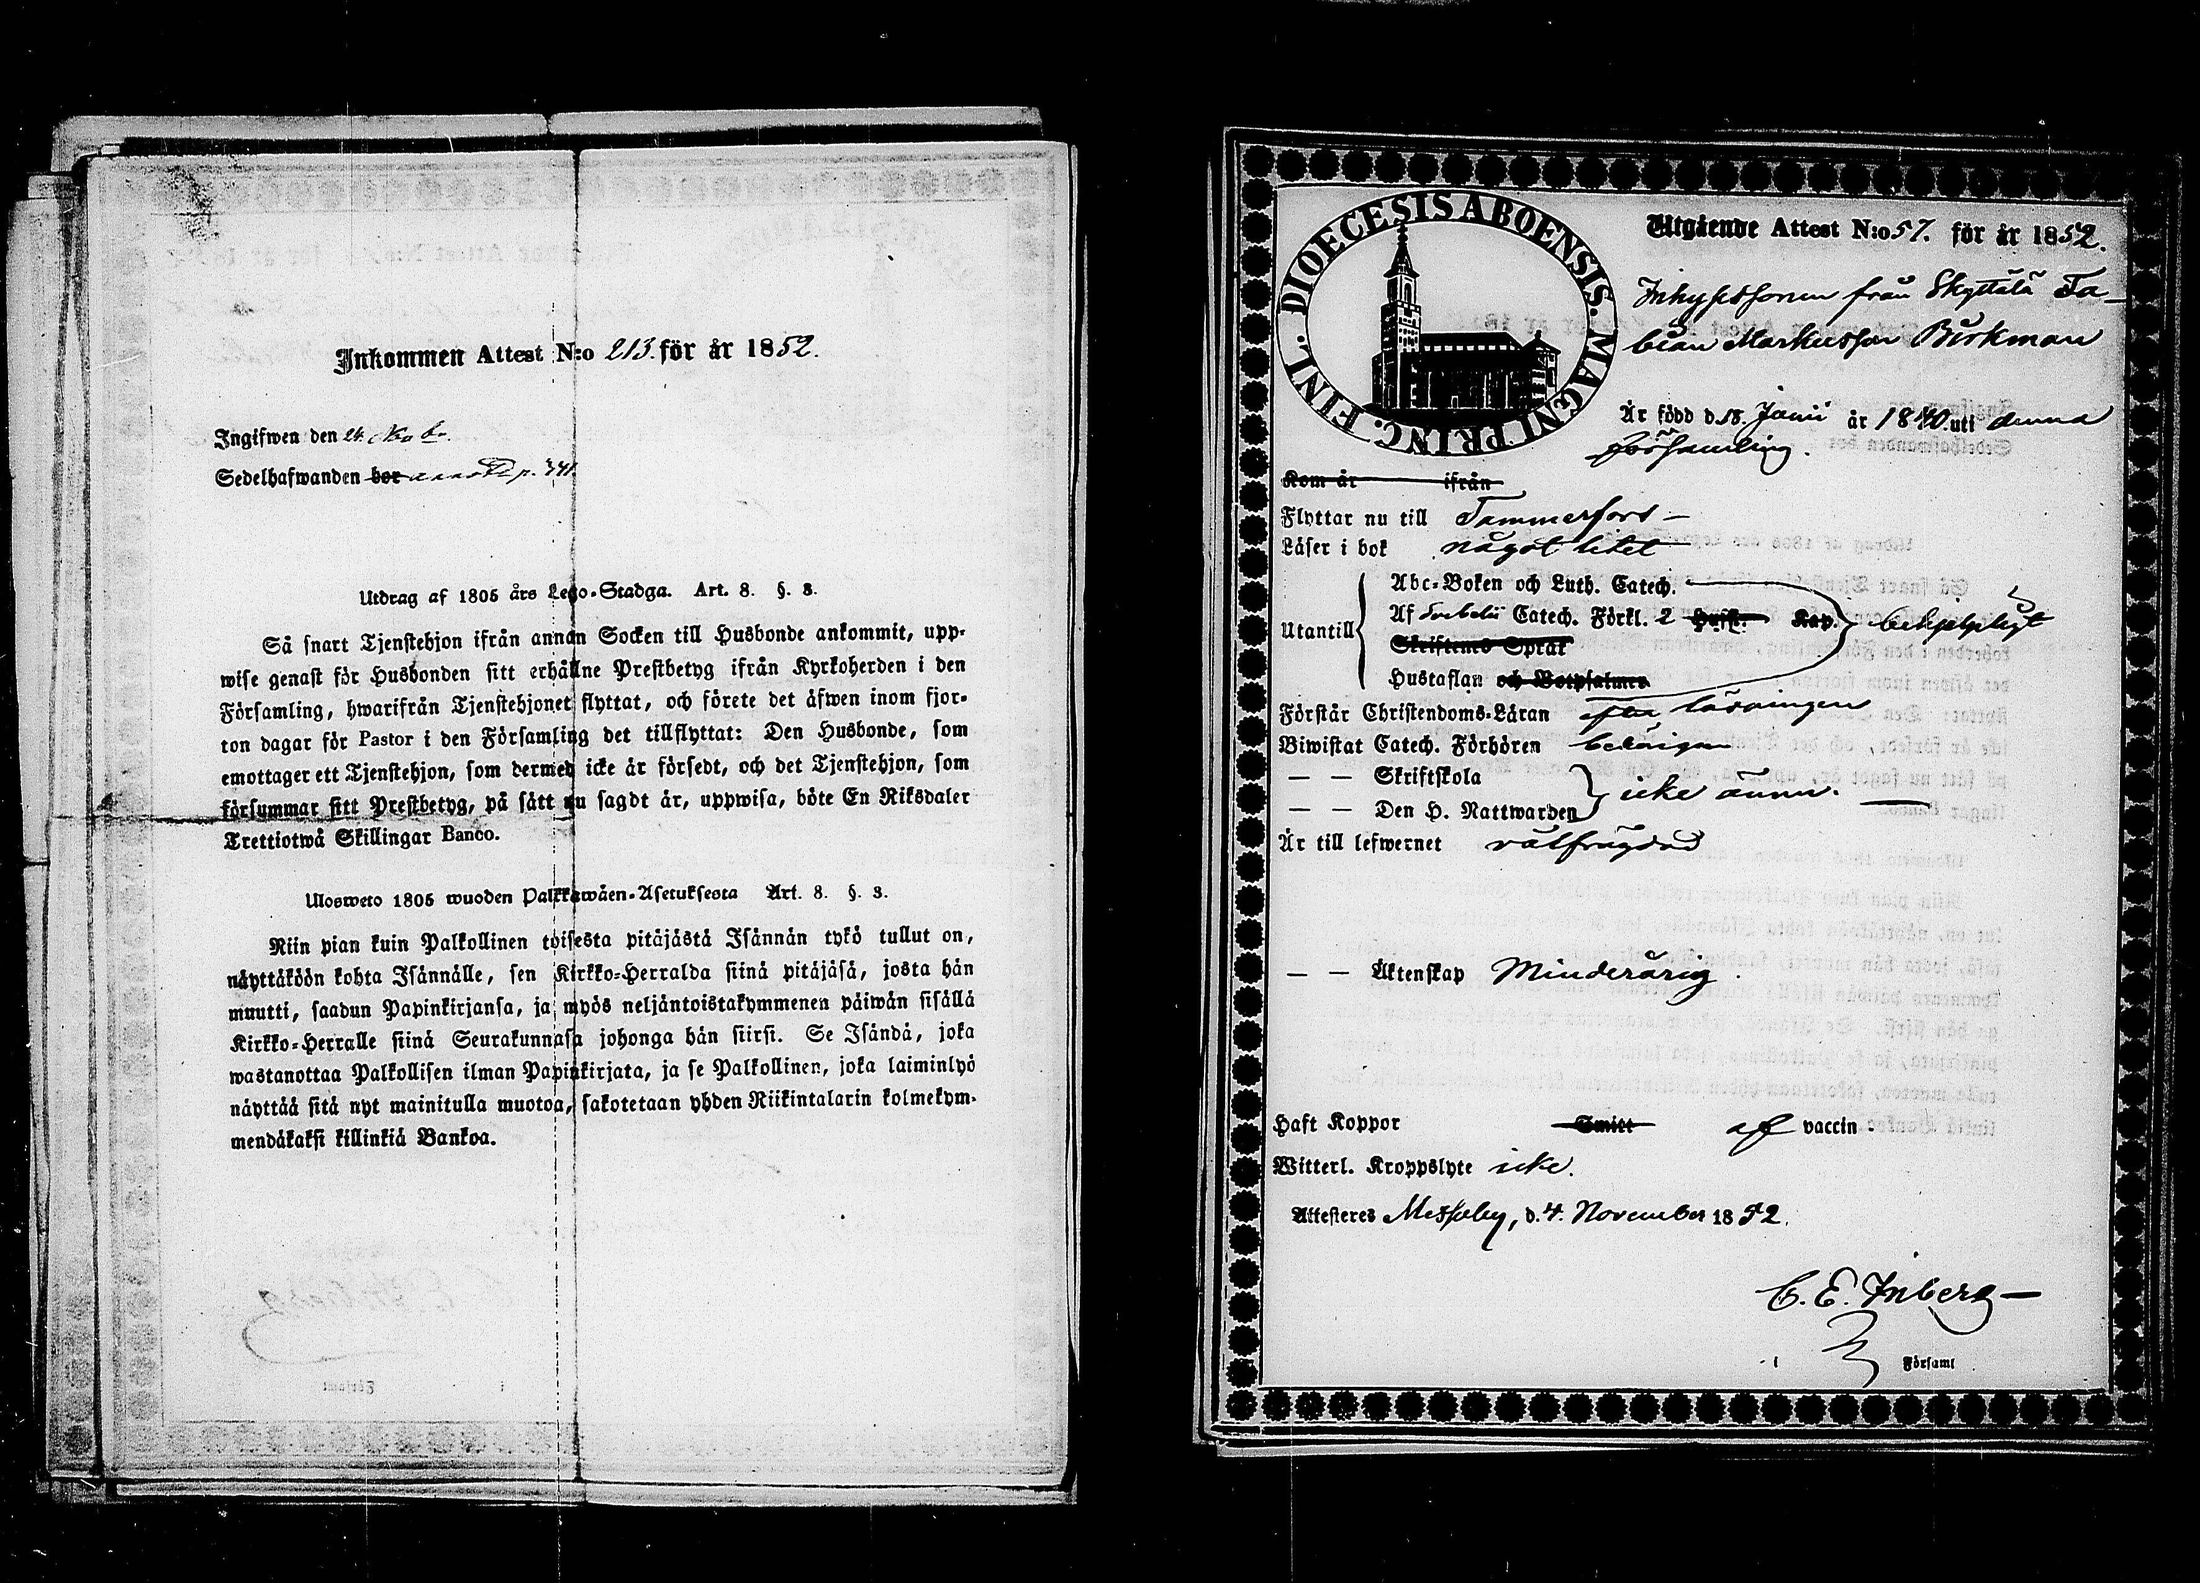 Inkommen Attest N:o 213. för år 1852.
Ingifwen den 24.
Sedelhafwanden bor p. 741.
Utdrag af 1805 års Lego-Stadga. Art. 8. §. 3.
Så snart Tjenstehjon ifrån annan Socken till Husbonde ankommit, upp-
wise genast för Husbonden sitt erhållne Prestbetyg ifrån Kyrkoherden i den
Församling, hwarifrån Tjenstehjonet flyttat, och förete det äfwen inom fjor-
ton dagar för Pastor i den Församling det tillflyttat: Den Husbonde, som
emottager ett Tjenstehjon, som dermed icke är försedt, och det Tjenstehjon, som
försummar sitt Prestbetyg, på sätt nu sagdt är, uppwisa, böte En Riksdaler
Trettiotwå Skillingar Banco.
Ulosweto 1805 wuoden Palkkawäen-Asetuksesta Art. 8. §. 3.
Niin pian kuin Palkollinen toisesta pitäjästä Isännän tykö tullut on,
näyttäköön kohta Isännälle, sen Kirkko-Herralda siinä pitäjäsä, josta hän
muutti, saadun Papinkirjansa, ja myös neljäntoistakymmenen päiwän sisällä
Kirkko-Herralle siinä Seurakunnasa johonga hän siirsi. Se Isändä, joka
wastanottaa Palkollisen ilman Papinkirjata, ja se Palkollinen, joka laiminlyö
näyttää sitä nyt mainitulla muotoa, sakotetaan yhden Riikintalarin kolmekym-
mendäkaksi killinkiä Bankoa.
DIOECESIS ABOENSIS. MAGNI PRINC. FINL.
Utgående Attest N:o 57. för år 1852.
Inhysessonen från Skyttälä Ta-
bian Markusson Birkman
Är född d. 18. Junii år 1840. uti denna
församling.
Kom år ifrån
Flyttar nu till Tammerfors
Läser i bok något litet
Utantill
Abc-Boken och Luth. Catech.
Af Svebelii Catech. Förkl. 2 Hufst. Kap. behjelpligt
Skriftens Språk
Hustaflan och Botpsalmer
Förstår Christendoms-Läran som läsningen
Biwistat Catech. Förhören
— — Skriftskola
— — Den H. Nattwarden icke ännu.
Är till lefwernet välfrägdad
— — Äktenskap Minderårig.
Haft Koppor Smitt af vaccin.
Witterl. Kroppslyte icke.
Attesteres Messuby, d. 4. November 1852.
C. E. Inberg
Förfaml